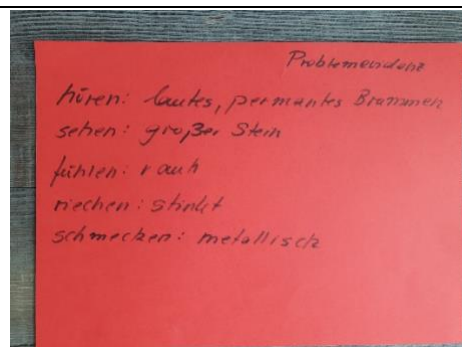 Problemevidenz
hören: lautes, permantes Brummen
sehen: großer Stein
fühlen: rauh
riechen: stinkt
schmecken: metallisch